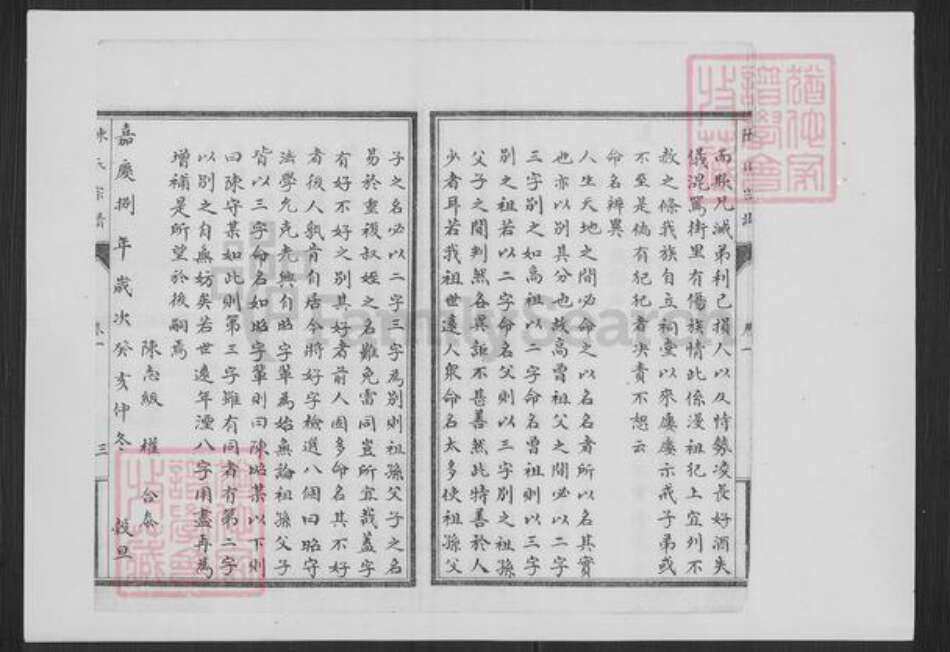 陳氏宗譜 卷一
而欺凡滅弟利己損人以及恃勢凌長好酒失
儀混罵街里有傷族情此係漫祖犯上宜列不
赦之條我族自立祠堂以來屢屢示戒子弟或
不至是倘有犯犯者决責不恕云
命名辨異
人生天地之間必命之以名名者所以名其實
也亦以別其分也故高曾祖父之間必以二字
三字別之如高祖以二字命名曾祖則以三字
別之祖若以二字命名父則以三字別之祖孫
父子之間判然各異詎不甚善然此特善於人
少者耳若我祖世遠人衆命名太多使祖孫父
子之名必以二字三字為別則祖孫父子之名
易於重複叔姪之名難免雷同豈所宜哉蓋字
有好不好之別其好者前人固多命名其不好
者後人孰肯自居今將好字檢選八個曰昭守
法學允克考興自昭字輩為始無論祖孫父子
皆以三字命名如昭字輩則曰陳昭某以下則
曰陳守某如此則第三字雖有同者有第二字
以別之自無妨矣若世遠年湮八字用盡再為
增補是所望於後嗣焉
陳志級 權 合叅
嘉慶捌年歲次癸亥仲冬 穀旦
陳氏宗譜 卷一 三
FamilySearch
譜學會